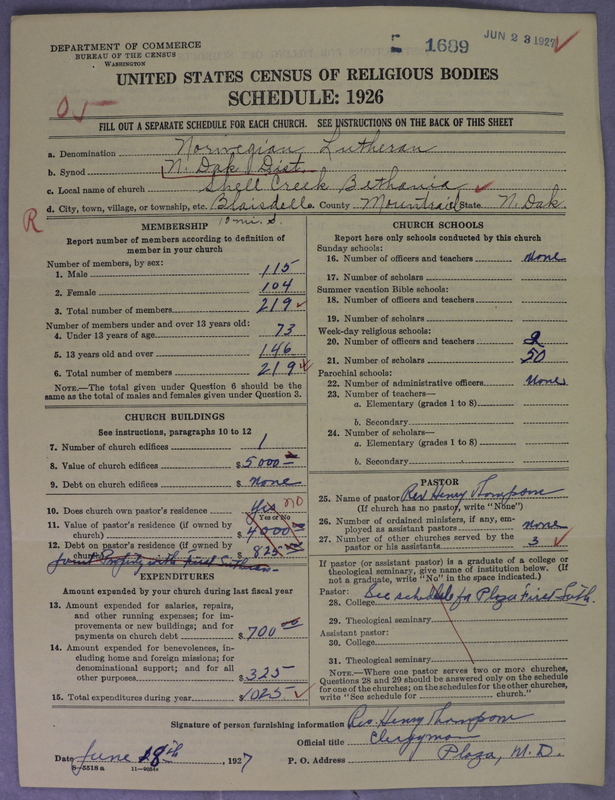 DEPARTMENT OF COMMERCE
BUREAU OF THE CENSUS
WASHINGTON
1689
JUN 23 1927
UNITED STATES CENSUS OF RELIGIOUS BODIES
SCHEDULE: 1926
05
FILL OUT A SEPARATE SCHEDULE FOR EACH CHURCH. SEE INSTRUCTIONS ON THE BACK OF THIS SHEET
a. Denomination Norwegian Lutheran
b. Synod N. Dak Dist.
c. Local name of church Shell Creek Bethania
d. City, town, village, or township, etc. Blaisdell e. County Mountrail State N. Dak.
R
10 mi. S.
MEMBERSHIP
Report number of members according to definition of
member in your church
Number of members, by sex:
1. Male 115
2. Female 104
3. Total number of members 219
Number of members under and over 13 years old:
4. Under 13 years of age 73
5. 13 years old and over 146
6. Total number of members 219
NOTE.—The total given under Question 6 should be the
same as the total of males and females given under Question 3.
CHURCH BUILDINGS
See instructions, paragraphs 10 to 12
7. Number of church edifices 1
8. Value of church edifices $5000
9. Debt on church edifices $ None
10. Does church own pastor's residence? Yes no
Yes or No
11. Value of pastor's residence (if owned by
church) $4000
12. Debt on pastor's residence (if owned by
church) $825
Joint Property with First Lutheran
EXPENDITURES
Amount expended by your church during last fiscal year
13. Amount expended for salaries, repairs,
and other running expenses; for im-
provements or new buildings; and for
payments on church debt $700
14. Amount expended for benevolences, in-
cluding home and foreign missions; for
denominational support; and for all
other purposes $325
15. Total expenditures during year $1025
CHURCH SCHOOLS
Report here only schools conducted by this church
Sunday schools:
16. Number of officers and teachers None
17. Number of scholars
Summer vacation Bible schools:
18. Number of officers and teachers
19. Number of scholars
Week-day religious schools:
20. Number of officers and teachers 2
21. Number of scholars 50
Parochial schools:
22. Number of administrative officers None
23. Number of teachers—
a. Elementary (grades 1 to 8)
b. Secondary
24. Number of scholars—
a. Elementary (grades 1 to 8)
b. Secondary
PASTOR
25. Name of pastor Rev Henry Thompson
(If church has no pastor, write "None")
26. Number of ordained ministers, if any, em-
ployed as assistant pastors None
27. Number of other churches served by the
pastor or his assistants 3
If pastor (or assistant pastor) is a graduate of a college or
theological seminary, give name of institution below. (If
not a graduate, write "No" in the space indicated.)
Pastor:
28. College See schedule for Plaza First Luth.
29. Theological seminary
Assistant pastor:
30. College
31. Theological seminary
NOTE.—Where one pastor serves two or more churches,
Questions 28 and 29 should be answered only on the schedule
for one of the churches; on the schedules for the other churches,
write "See schedule for church."
Signature of person furnishing information Rev Henry Thompson
Official title Clergyman
Date June 18th, 1927 P. O. Address Plaza, N. D.
8-5518a